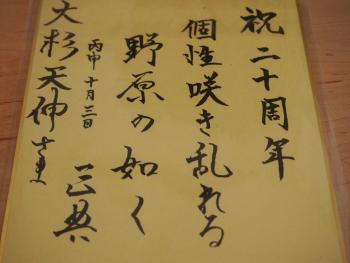 祝二十周年
個性咲き乱れる
野原の如く
丙申 十月三日
正典
大杉天伸さま